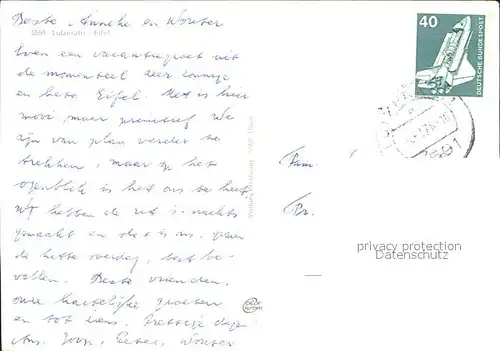 Beste Anneke en Wouter
5591 Lutzerath / Eifel
Even een vacantiegroet uit
de momenteel zeer zonnige
en hete Eifel. Het is hier
mooi, maar We
zijn van plan verder te
trekken, maar op het
ogenblik is het ons te heet.
Wij hebben de reis 's-nachts
gemaakt en dat is ons, gezien
de hitte overdag, best be-
vallen. Beste vrienden,
onze hartelijke groeten
en tot ziens. Prettige dagen
Joop, Wouter
40
DEUTSCHE BUNDESPOST
5591
Fam.
Pr.
privacy protection
Datenschutz